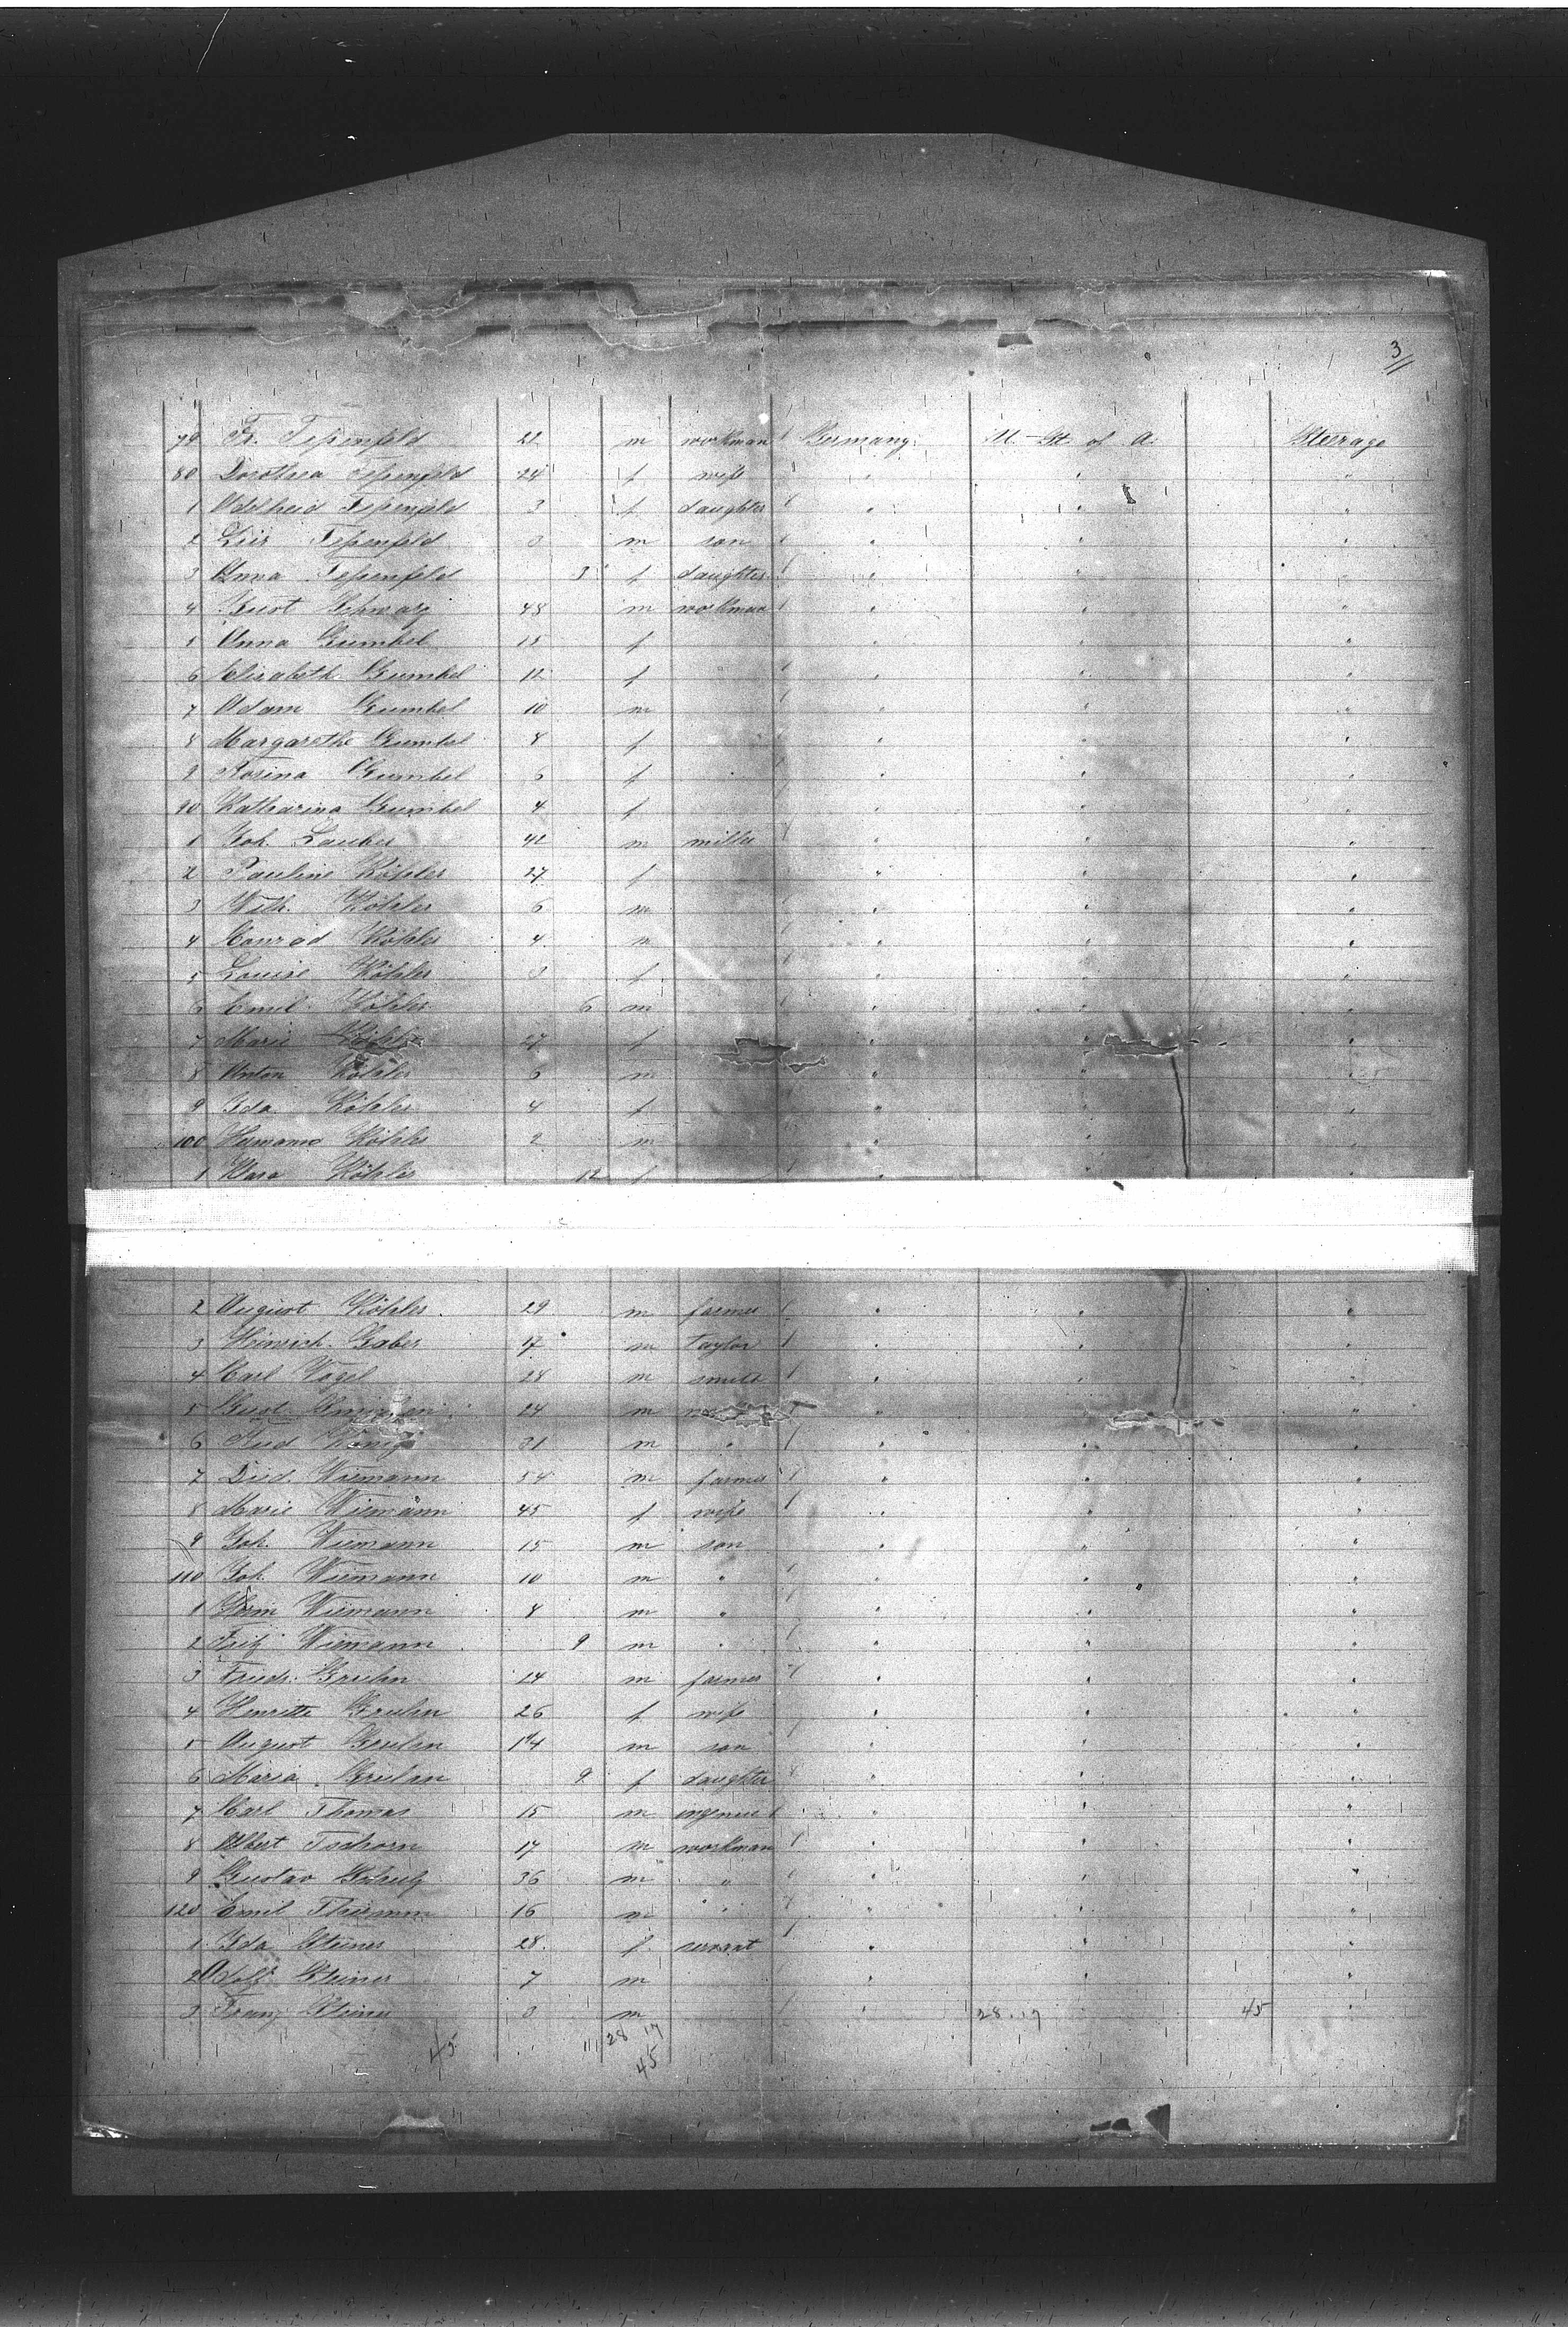 3
79 Fr. Tepenfeld 22 m workman Germany. U. St. of A. Steerage
80 Dorothea Tepenfeld 24 f wife " " "
1 Adelheid Tepenfeld 3 f daughter " " "
2 Tepenfeld m son " " "
3 Anna Tepenfeld 3 f daughter " " "
4 Gust Schwarz 48 m workman " " "
5 Anna Gumbel 15 f " " "
6 Elisabeth Gumbel 12 f " " "
7 Adam Gumbel 10 m " " "
8 Margarethe Gumbel 8 f " " "
9 Rosina Gumbel 6 f " " "
90 Katharina Gumbel 4 f " " "
1 Joh. 42 m miller " " "
2 Pauline Köhler 27 f " " "
3 Wilh. Köhler 6 m " " "
4 Conrad Köhler 4 m " " "
5 Louise Köhler 3 f " " "
6 Emil Köhler 6 m " " "
7 Marie Köhler 27 f " " "
8 Anton Köhler 6 m " " "
9 Ida Köhler 4 f " " "
100 Hermann Köhler 2 m " " "
1 Klara Köhler 12 f " " "
2 August Köhler 29 m farmer " " "
3 Heinrich Gaber 17 m taylor " " "
4 Carl Vogel 28 m " " "
5 Gust. 24 m " " "
6 König 31 m " " " "
7 Died. Wiemann 54 m farmer " " "
8 Marie Wiemann 45 f wife " " "
9 Joh. Wiemann 15 m son " " "
110 Joh. Wiemann 10 m " " " "
1 Wiemann 8 m " " " "
2 Fritz Wiemann 9 m " " " "
3 Friedr. Gruhn 24 m farmer " " "
4 Henriette Gruhn 26 f wife " " "
5 August Gruhn m son " " "
6 Maria Gruhn 9 f daughter " " "
7 Karl Thomas 15 m " " "
8 Albert Tschorn 17 m workman " " "
9 Gustav Schulz 36 m " " " "
120 Emil Thiemm 16 m " " " "
1 Ida Steiner 28 f servant " " "
2 Adolf Steiner 7 m " " "
3 Franz Steiner 3 m " 28.17 45 "
45 28 17
45